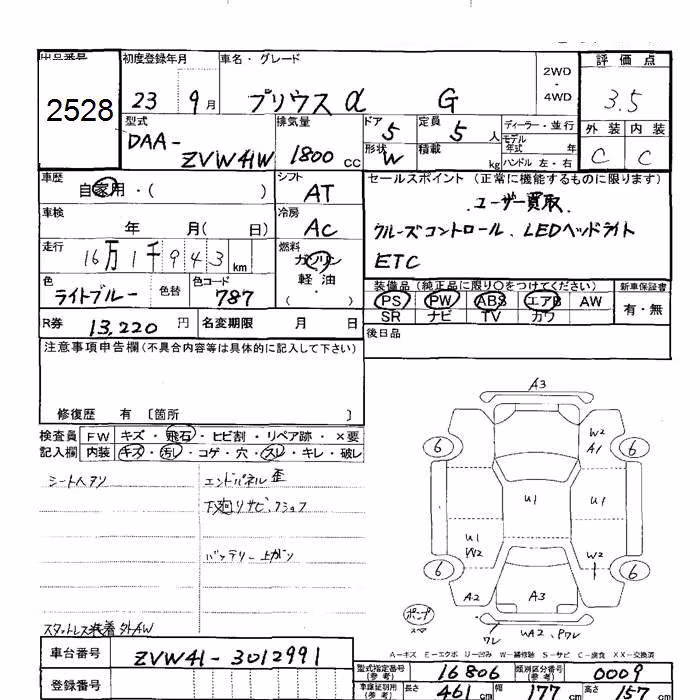 初度登録年月 車名・グレード 評価点
2528 23 9月 プリウスα G 2WD・4WD 3.5
型式 排気量 ドア 定員 ディーラー・並行 外装 内装
DAA-ZVW41W 1800cc 5 5人 モデル年式 年 C C
形状 W 積載 kg ハンドル 左・右
車歴 自家用・( ) シフト AT セールスポイント (正常に機能するものに限ります)
ユーザー買取
車検 年 月( 日) 冷房 AC
クルーズコントロール、LEDヘッドライト
走行 16万1千943km 燃料 ガソリン 軽油 ・( )
ETC
色 ライトブルー 色替 色コード 787
装備品(純正品に限り〇をつけてください) 新車保証書
PS PW ABS エアB AW 有・無
SR ナビ TV カワ
R券 13,220円 名変期限 月 日
後日品
注意事項申告欄(不具合内容等は具体的に記入して下さい)
修復歴 有 〔箇所 〕
検査員 FW キズ・飛石・ヒビ割・リペア跡・×要
記入欄 内装 キズ・汚レ・コゲ・穴・スレ・キレ・破レ
シートヘタリ エンドパネル歪
下廻りサビ、フショク
バッテリー上がり
スタットレス装着 外AW
A3
W2
A1
6 6
U1 U1
U1
W2 W2
6 6
A2 A3
ワレ WA2、Pワレ
A-キズ E-エクボ U-凹み W-補修跡 S-サビ C-腐食 XX-交換済
車台番号 ZVW41-3012991
登録番号
型式指定番号(参考) 16806 類別区分番号(参考) 0009
車庫証明用(参考) 長さ 461cm 幅 177cm 高さ 157cm